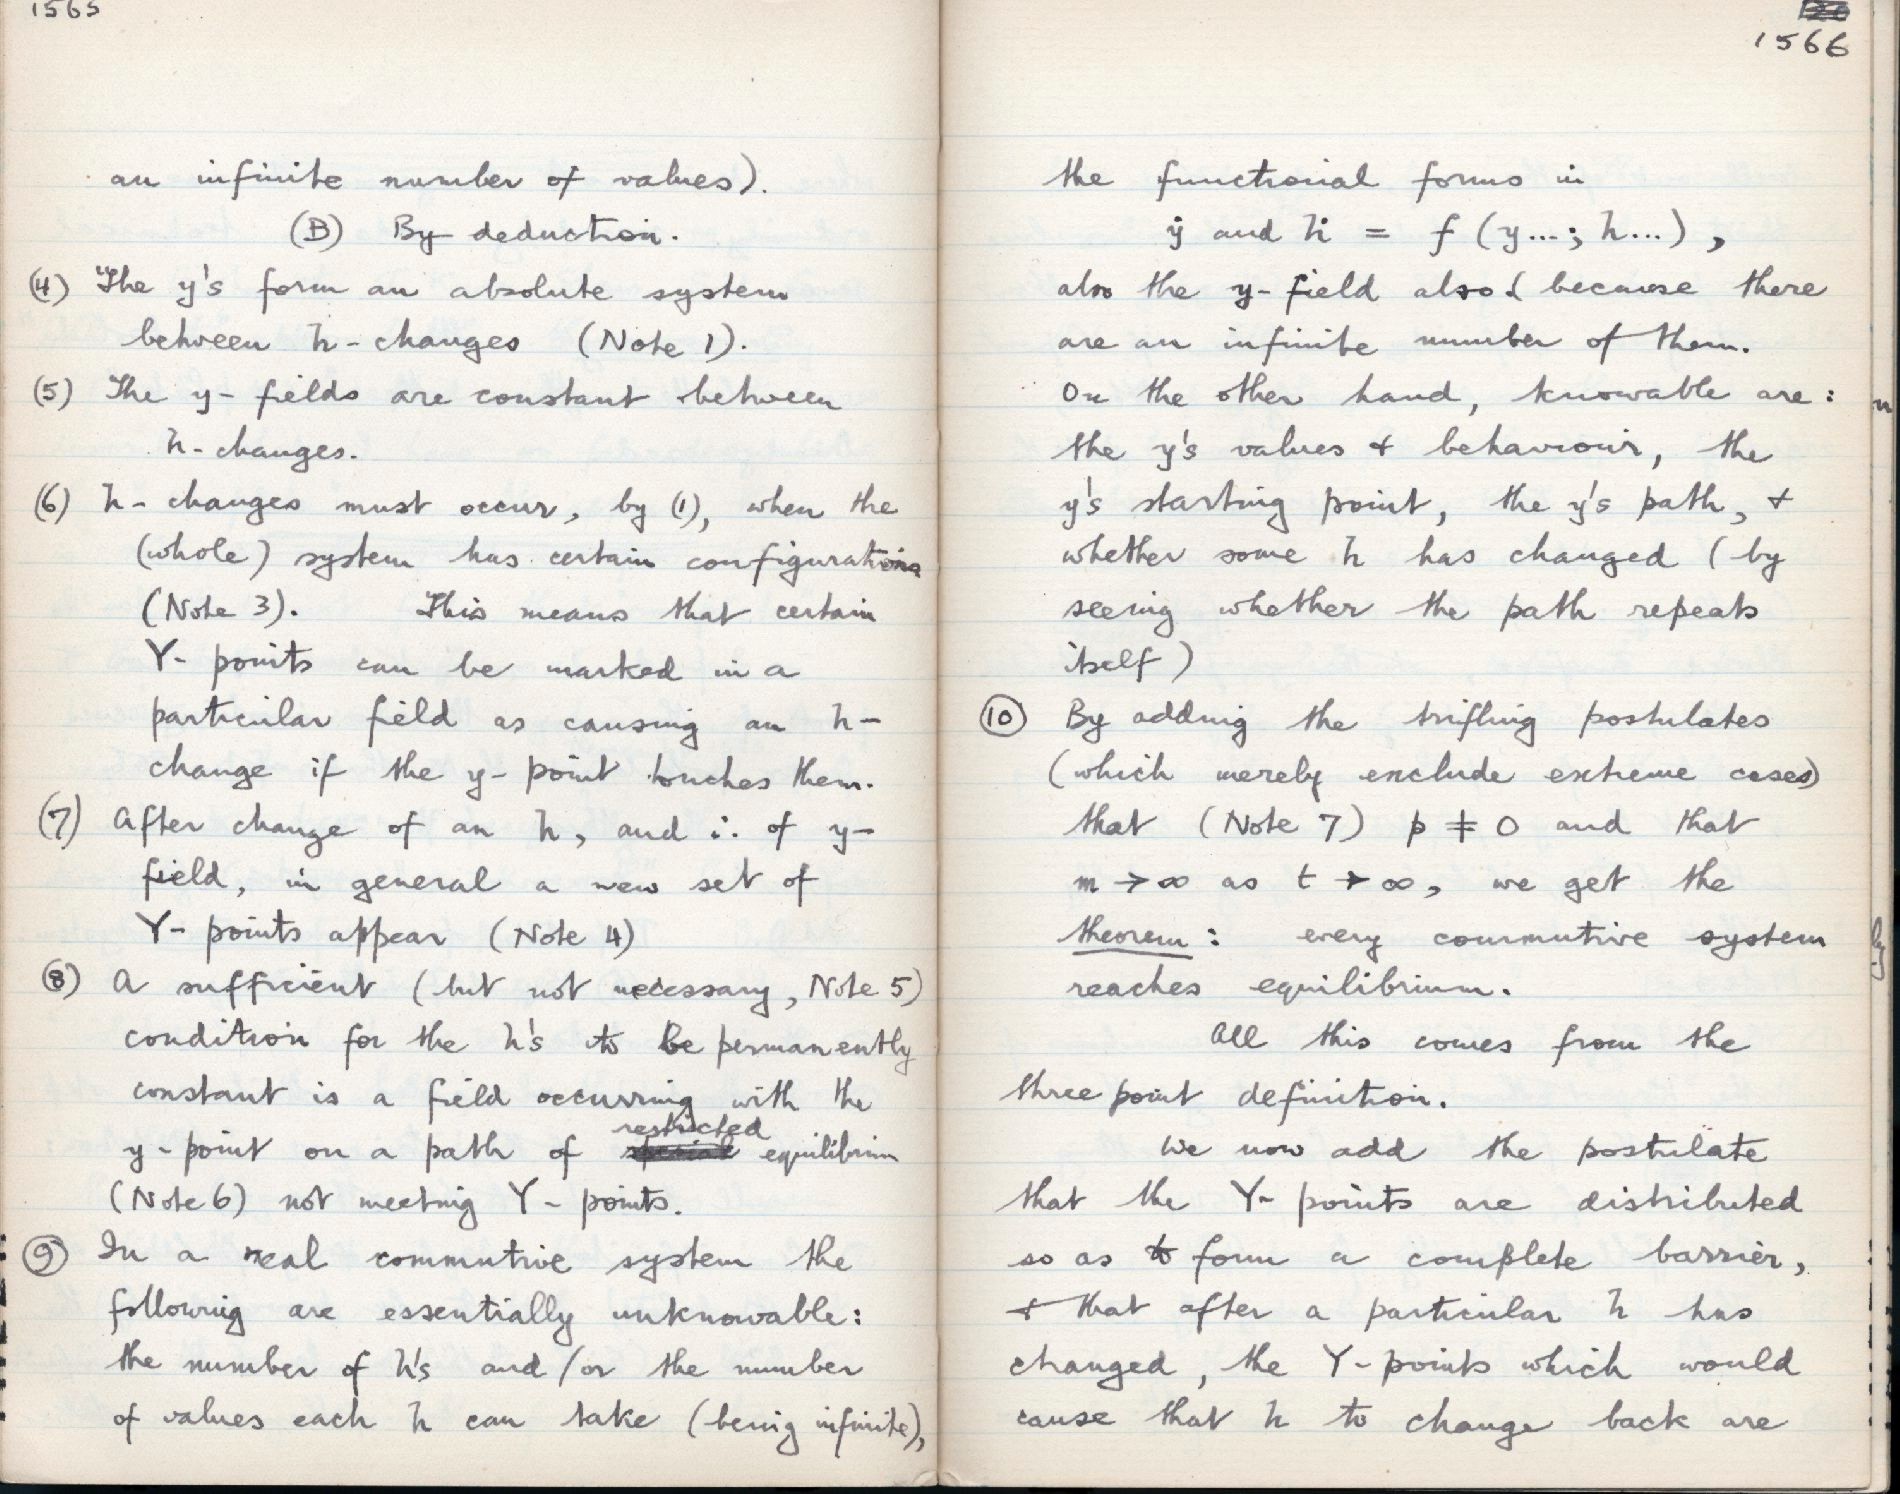 1565
an infinite number of values).
(B) By deduction.
(4) The y's form an absolute system
between h-changes (Note 1).
(5) The y-fields are constant between
h-changes.
(6) h-changes must occur, by (1), when the
(whole) system has certain configurations
(Note 3). This means that certain
Y-points can be marked in a
particular field as causing an h-
change if the y-point touches them.
(7) After change of an h, and ∴ of y-
field, in general a new set of
Y-points appear (Note 4)
(8) A sufficient (but not necessary, Note 5)
condition for the h's to be permanently
constant is a field occurring with the
restricted
y-point on a path of special equilibrium
(Note 6) not meeting Y-points.
(9) In a real commutive system the
following are essentially unknowable:
the number of h's and/or the number
of values each h can take (being infinite),
1566
the functional forms in
ẏ and ḣ = f (y...; h...),
also the y-field also (because there
are an infinite number of them.
On the other hand, knowable are:
the y's values & behaviour, the
y's starting point, the y's path, &
whether some h has changed (by
seeing whether the path repeats
itself)
(10) By adding the trifling postulates
(which merely exclude extreme cases)
that (Note 7) p ≠ 0 and that
m → ∞ as t → ∞, we get the
theorem: every commutive system
reaches equilibrium.
All this comes from the
three point definition.
We now add the postulate
that the Y-points are distributed
so as to form a complete barrier,
& that after a particular h has
changed, the Y-points which would
cause that h to change back are